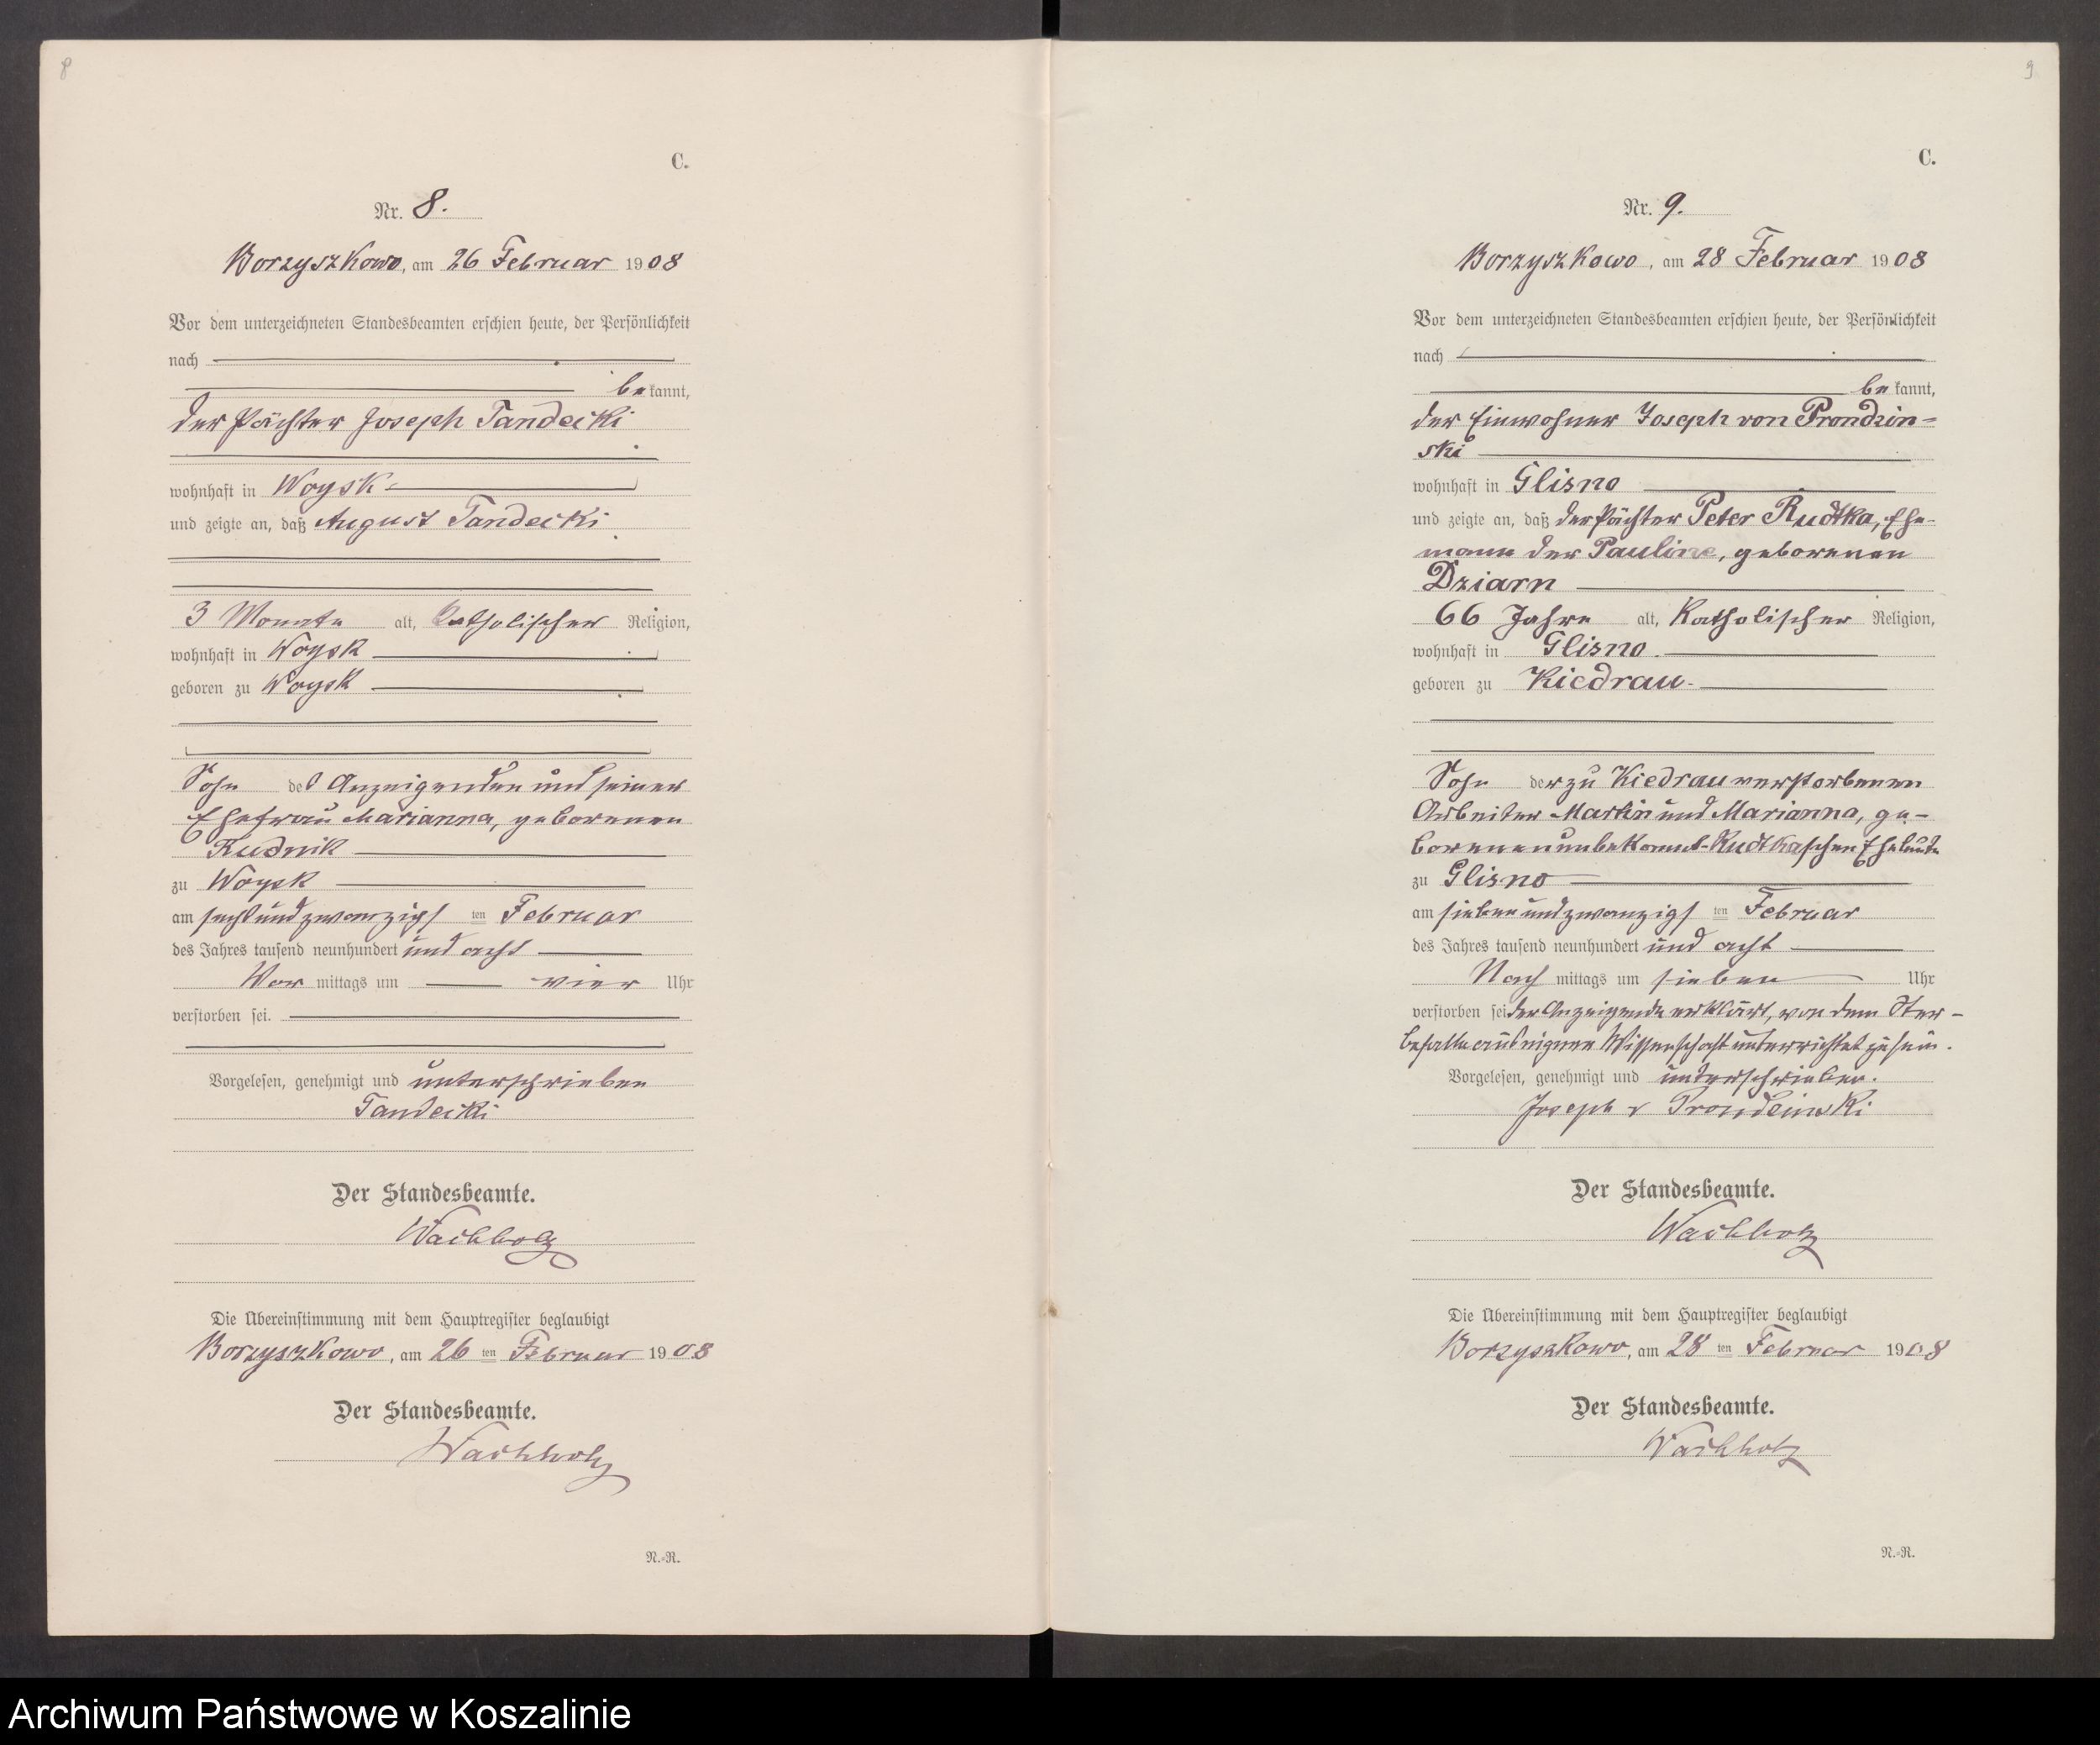 8
C.
Nr. 8.
Borzyszkowo, am 26 Februar 1908
Vor dem unterzeichneten Standesbeamten erschien heute, der Persönlichkeit
nach
bekannt,
der Pächter Joseph Tandecki
wohnhaft in Woysk
und zeigte an, daß August Tandecki
3 Monate alt, katholischer Religion,
wohnhaft in Woysk
geboren zu Woysk
Sohn des Anzeigenden und seiner
Ehefrau Marianna, geborenen
Rudnik
zu Woysk
am sechsundzwanzigsten Februar
des Jahres tausend neunhundert und acht
Vor mittags um vier Uhr
verstorben sei.
Vorgelesen, genehmigt und unterschrieben
Tandecki
Der Standesbeamte.
Wachholz
Die Übereinstimmung mit dem Hauptregister beglaubigt
Borzyszkowo, am 26 ten Februar 1908
Der Standesbeamte.
Wachholz
N.-R.
9
C.
Nr. 9.
Borzyszkowo, am 28 Februar 1908
Vor dem unterzeichneten Standesbeamten erschien heute, der Persönlichkeit
nach
bekannt,
der Einwohner Joseph von Prondzin-
ski
wohnhaft in Glisno
und zeigte an, daß der Pächter Peter Rudtka, Ehe-
mann der Pauline, geborenen
Dziarn
66 Jahre alt, katholischer Religion,
wohnhaft in Glisno
geboren zu Kiedrau
Sohn der zu Kiedrau verstorbenen
Arbeiter Martin und Marianna, ge-
borenen unbekannt-Rudtkaschen Eheleute
zu Glisno
am siebenundzwanzigsten Februar
des Jahres tausend neunhundert und acht
Nach mittags um sieben Uhr
verstorben sei der Anzeigende erklärt, von dem Ster-
befalle aus eigner Wissenschaft unterrichtet zu sein.
Vorgelesen, genehmigt und unterschrieben.
Joseph v Prondzinski
Der Standesbeamte.
Wachholz
Die Übereinstimmung mit dem Hauptregister beglaubigt
Borzyszkowo, am 28 ten Februar 1908
Der Standesbeamte.
Wachholz
N.-R.
Archiwum Państwowe w Koszalinie